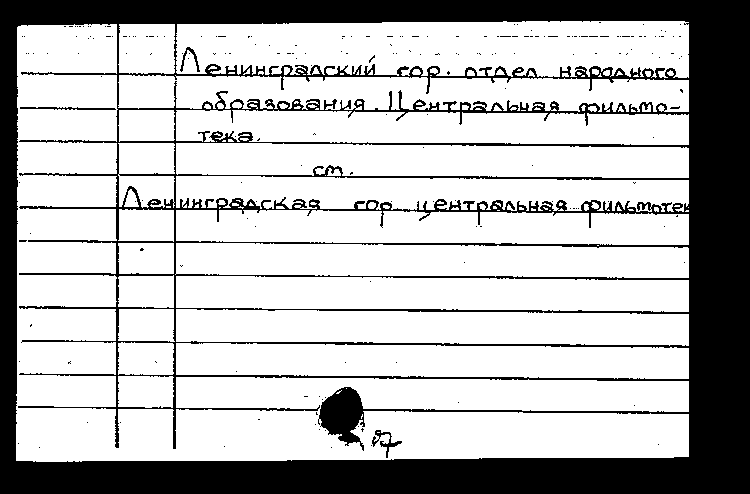 Ленинградский гор. отдел народного
образования. Центральная фильмо-
тека.
см.
Ленинградская гор центральная фильмотек